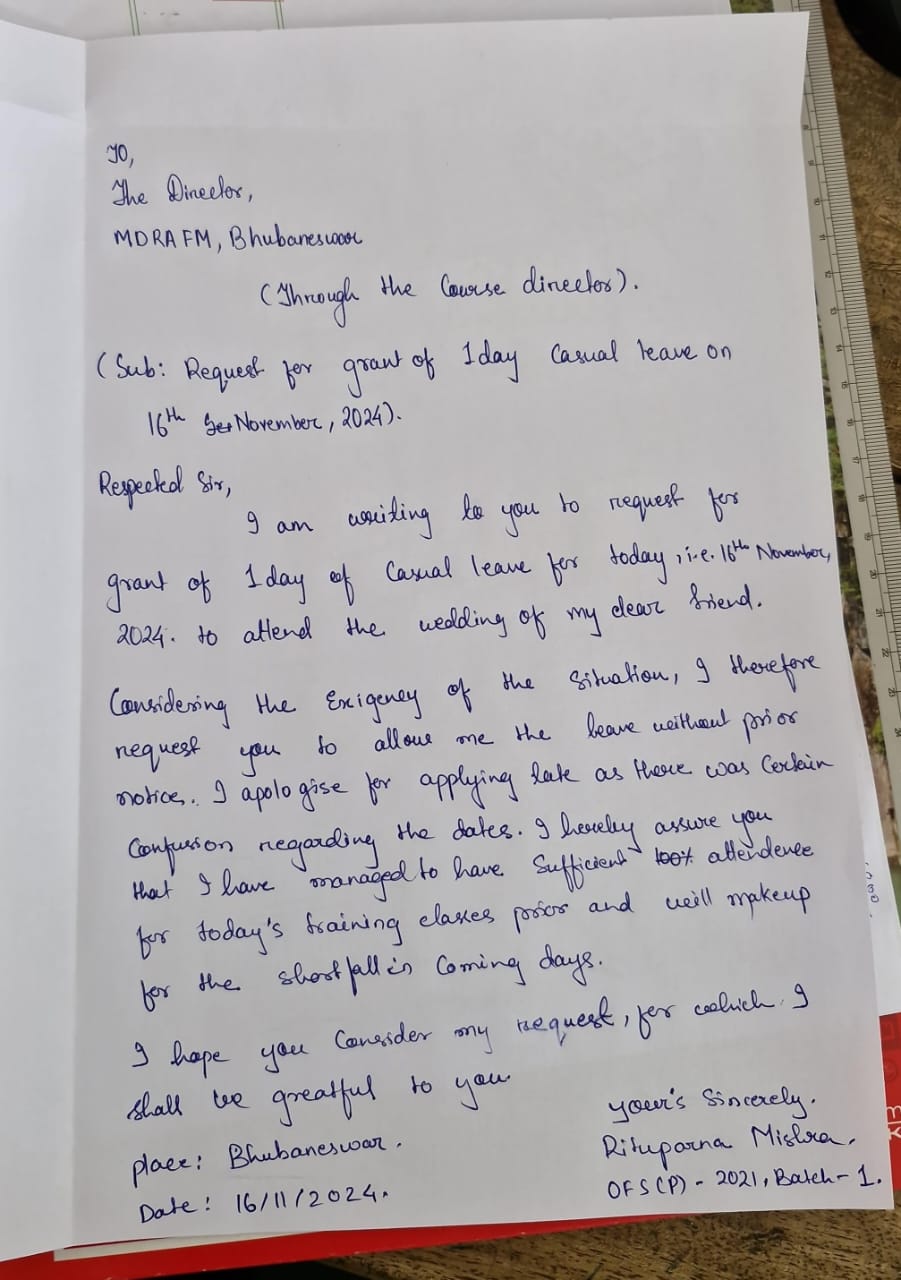 To,
The Director,
MDRAFM, Bhubaneswar
(Through the Course director).
(Sub: Request for grant of 1day Casual leave on
16th November, 2024).
Respected Sir,
I am writing to you to request for
grant of 1day of Casual leave for today, i.e. 16th November,
2024. to attend the wedding of my dear friend.
Considering the Exigency of the situation, I therefore
request you to allow me the leave without prior
notice. I apologise for applying late as there was Certain
Confusion regarding the dates. I hereby assure you
that I have managed to have sufficient 100% attendence
for today's training classes prior and will makeup
for the shortfall in Coming days.
I hope you Consider my request, for which I
shall be greatful to you
your's Sincerely.
place: Bhubaneswar.
Rituparna Mishra.
Date: 16/11/2024.
OFS(P) - 2021, Batch - 1.